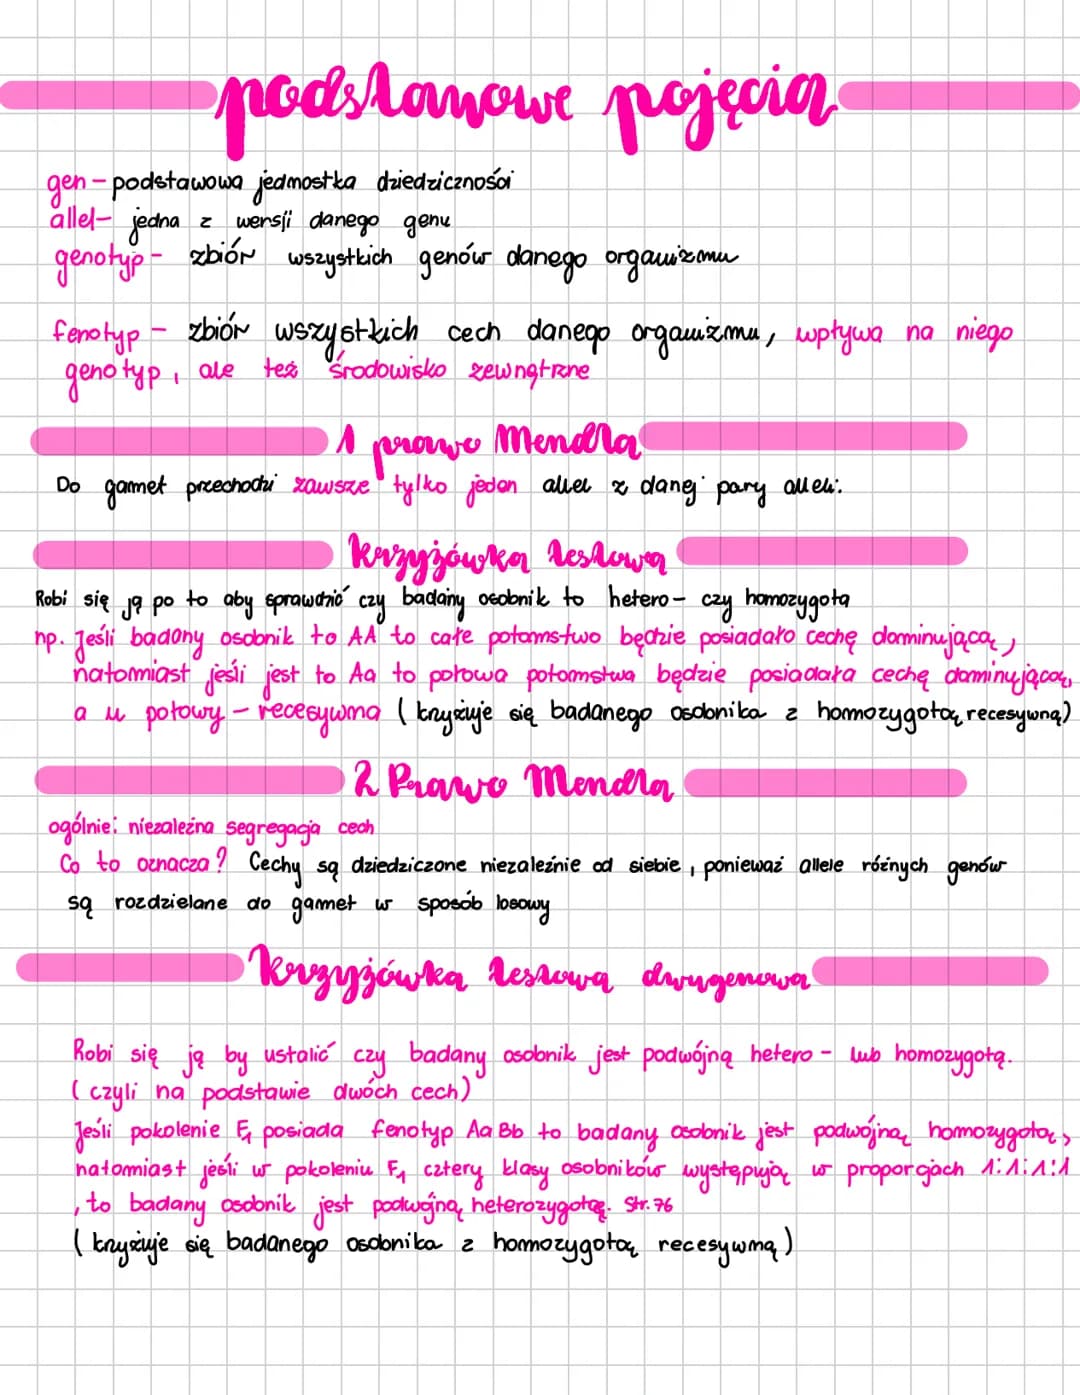 podstawowe pojęcia
gen - podstawowa jednostka dziedziczności
allel - jedna z wersji danego genu
genotyp - zbiór wszystkich genów danego organizmu
fenotyp - zbiór wszystkich cech danego organizmu, wpływa na niego
genotyp, ale też środowisko zewnątrzne
1 prawo Mendla
Do gamet przechodzi zawsze tylko jeden allel z danej pary alleli.
krzyżówka testowa
Robi się ją po to aby sprawdzić czy badany osobnik to hetero- czy homozygota
np. Jeśli badany osobnik to AA to całe potomstwo będzie posiadało cechę dominującą,
natomiast jeśli jest to Aa to połowa potomstwa będzie posiadała cechę dominującą,
a u połowy - recesywną (krzyżuje się badanego osobnika z homozygotą recesywną)
2 Prawo Mendla
ogólnie: niezależna segregacja cech
Co to oznacza? Cechy są dziedziczone niezależnie od siebie, ponieważ allele różnych genów
są rozdzielane do gamet w sposób losowy
Krzyżówka testowa dwugenowa
Robi się ją by ustalić czy badany osobnik jest podwójną hetero- lub homozygotą.
(czyli na podstawie dwóch cech)
Jeśli pokolenie F1 posiada fenotyp AaBb to badany osobnik jest podwójną homozygotą,
natomiast jeśli w pokoleniu F1 cztery klasy osobników występują w proporcjach 1:1:1:1
, to badany osobnik jest podwójną heterozygotą. Str. 76
(krzyżuje się badanego osobnika z homozygotą recesywną)